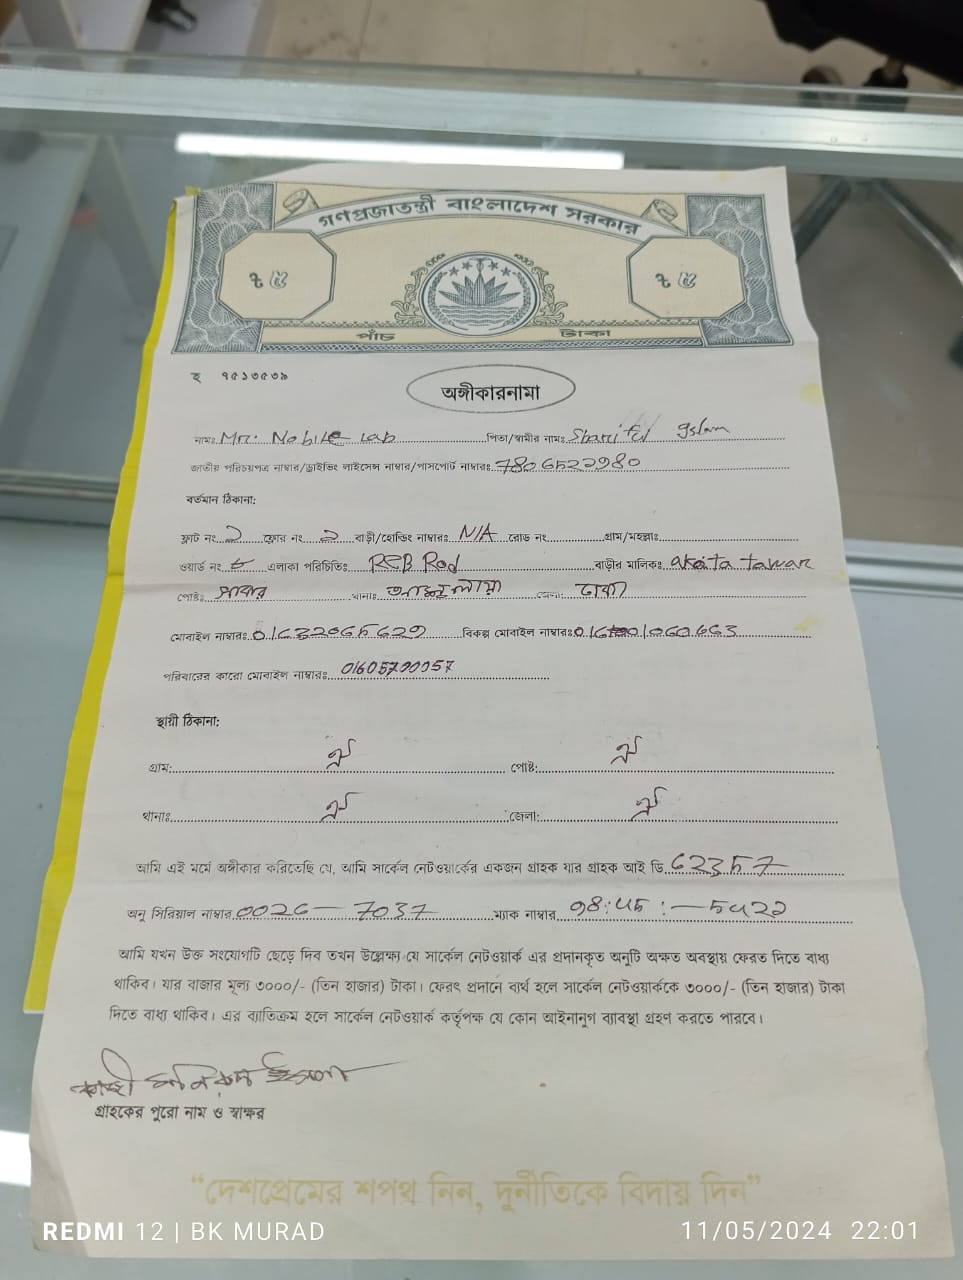 গণপ্রজাতন্ত্রী বাংলাদেশ সরকার
৳ ৫ ৳ ৫
পাঁচ টাকা
হ ৭৫১৩৫৩৯
অঙ্গীকারনামা
নামঃ Mr: Nobile Lab পিতা/স্বামীর নামঃ Shariful Islam
জাতীয় পরিচয়পত্র নাম্বার/ড্রাইভিং লাইসেন্স নাম্বার/পাসপোর্ট নাম্বারঃ 7806522980
বর্তমান ঠিকানা:
ফ্লাট নং 2 ফ্লোর নং 2 বাড়ী/হোল্ডিং নাম্বারঃ N/A রোড নং গ্রাম/মহল্লাঃ
ওয়ার্ড নং এলাকা পরিচিতিঃ Rod বাড়ীর মালিকঃ tawar
পোষ্টঃ সাভার থানাঃ আশুলিয়া জেলাঃ ঢাকা
মোবাইল নাম্বারঃ বিকল্প মোবাইল নাম্বারঃ
পরিবারের কারো মোবাইল নাম্বারঃ 01605700057
স্থায়ী ঠিকানা:
গ্রাম: ঐ পোষ্ট: ঐ
থানাঃ ঐ জেলা: ঐ
আমি এই মর্মে অঙ্গীকার করিতেছি যে, আমি সার্কেল নেটওয়ার্কের একজন গ্রাহক যার গ্রাহক আই ডি 62357
অনু সিরিয়াল নাম্বার 0026 — 7037 ম্যাক নাম্বার 98:45: — 5422
আমি যখন উক্ত সংযোগটি ছেড়ে দিব তখন উল্লেক্ষ্য যে সার্কেল নেটওয়ার্ক এর প্রদানকৃত অনুটি অক্ষত অবস্থায় ফেরত দিতে বাধ্য
থাকিব। যার বাজার মূল্য ৩০০০/- (তিন হাজার) টাকা। ফেরৎ প্রদানে ব্যর্থ হলে সার্কেল নেটওয়ার্ককে ৩০০০/- (তিন হাজার) টাকা
দিতে বাধ্য থাকিব। এর ব্যাতিক্রম হলে সার্কেল নেটওয়ার্ক কর্তৃপক্ষ যে কোন আইনানুগ ব্যাবস্থা গ্রহণ করতে পারবে।
গ্রাহকের পুরো নাম ও স্বাক্ষর
“দেশপ্রেমের শপথ নিন, দুর্নীতিকে বিদায় দিন”
REDMI 12 | BK MURAD 11/05/2024 22:01